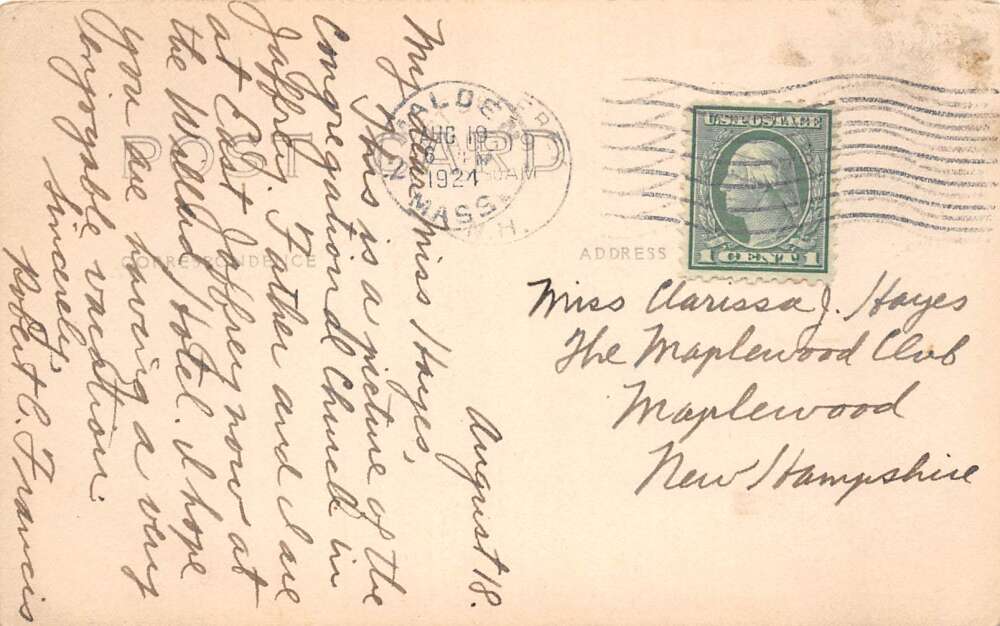 POST CARD
CORRESPONDENCE
ADDRESS
U.S. POSTAGE
1 CENT 1
MALDEN
MASS.
AUG 19
6 PM
1924
N.H.
August 18.
My dear Miss Hayes,
This is a picture of the
Congregational Church in
Jaffrey. Father and I are
at East Jaffrey now at
the Willard Hotel. I hope
you are having a very
enjoyable vacation.
Sincerely,
Robert C. Francis
Miss Clarissa J. Hayes
The Maplewood Club
Maplewood
New Hampshire